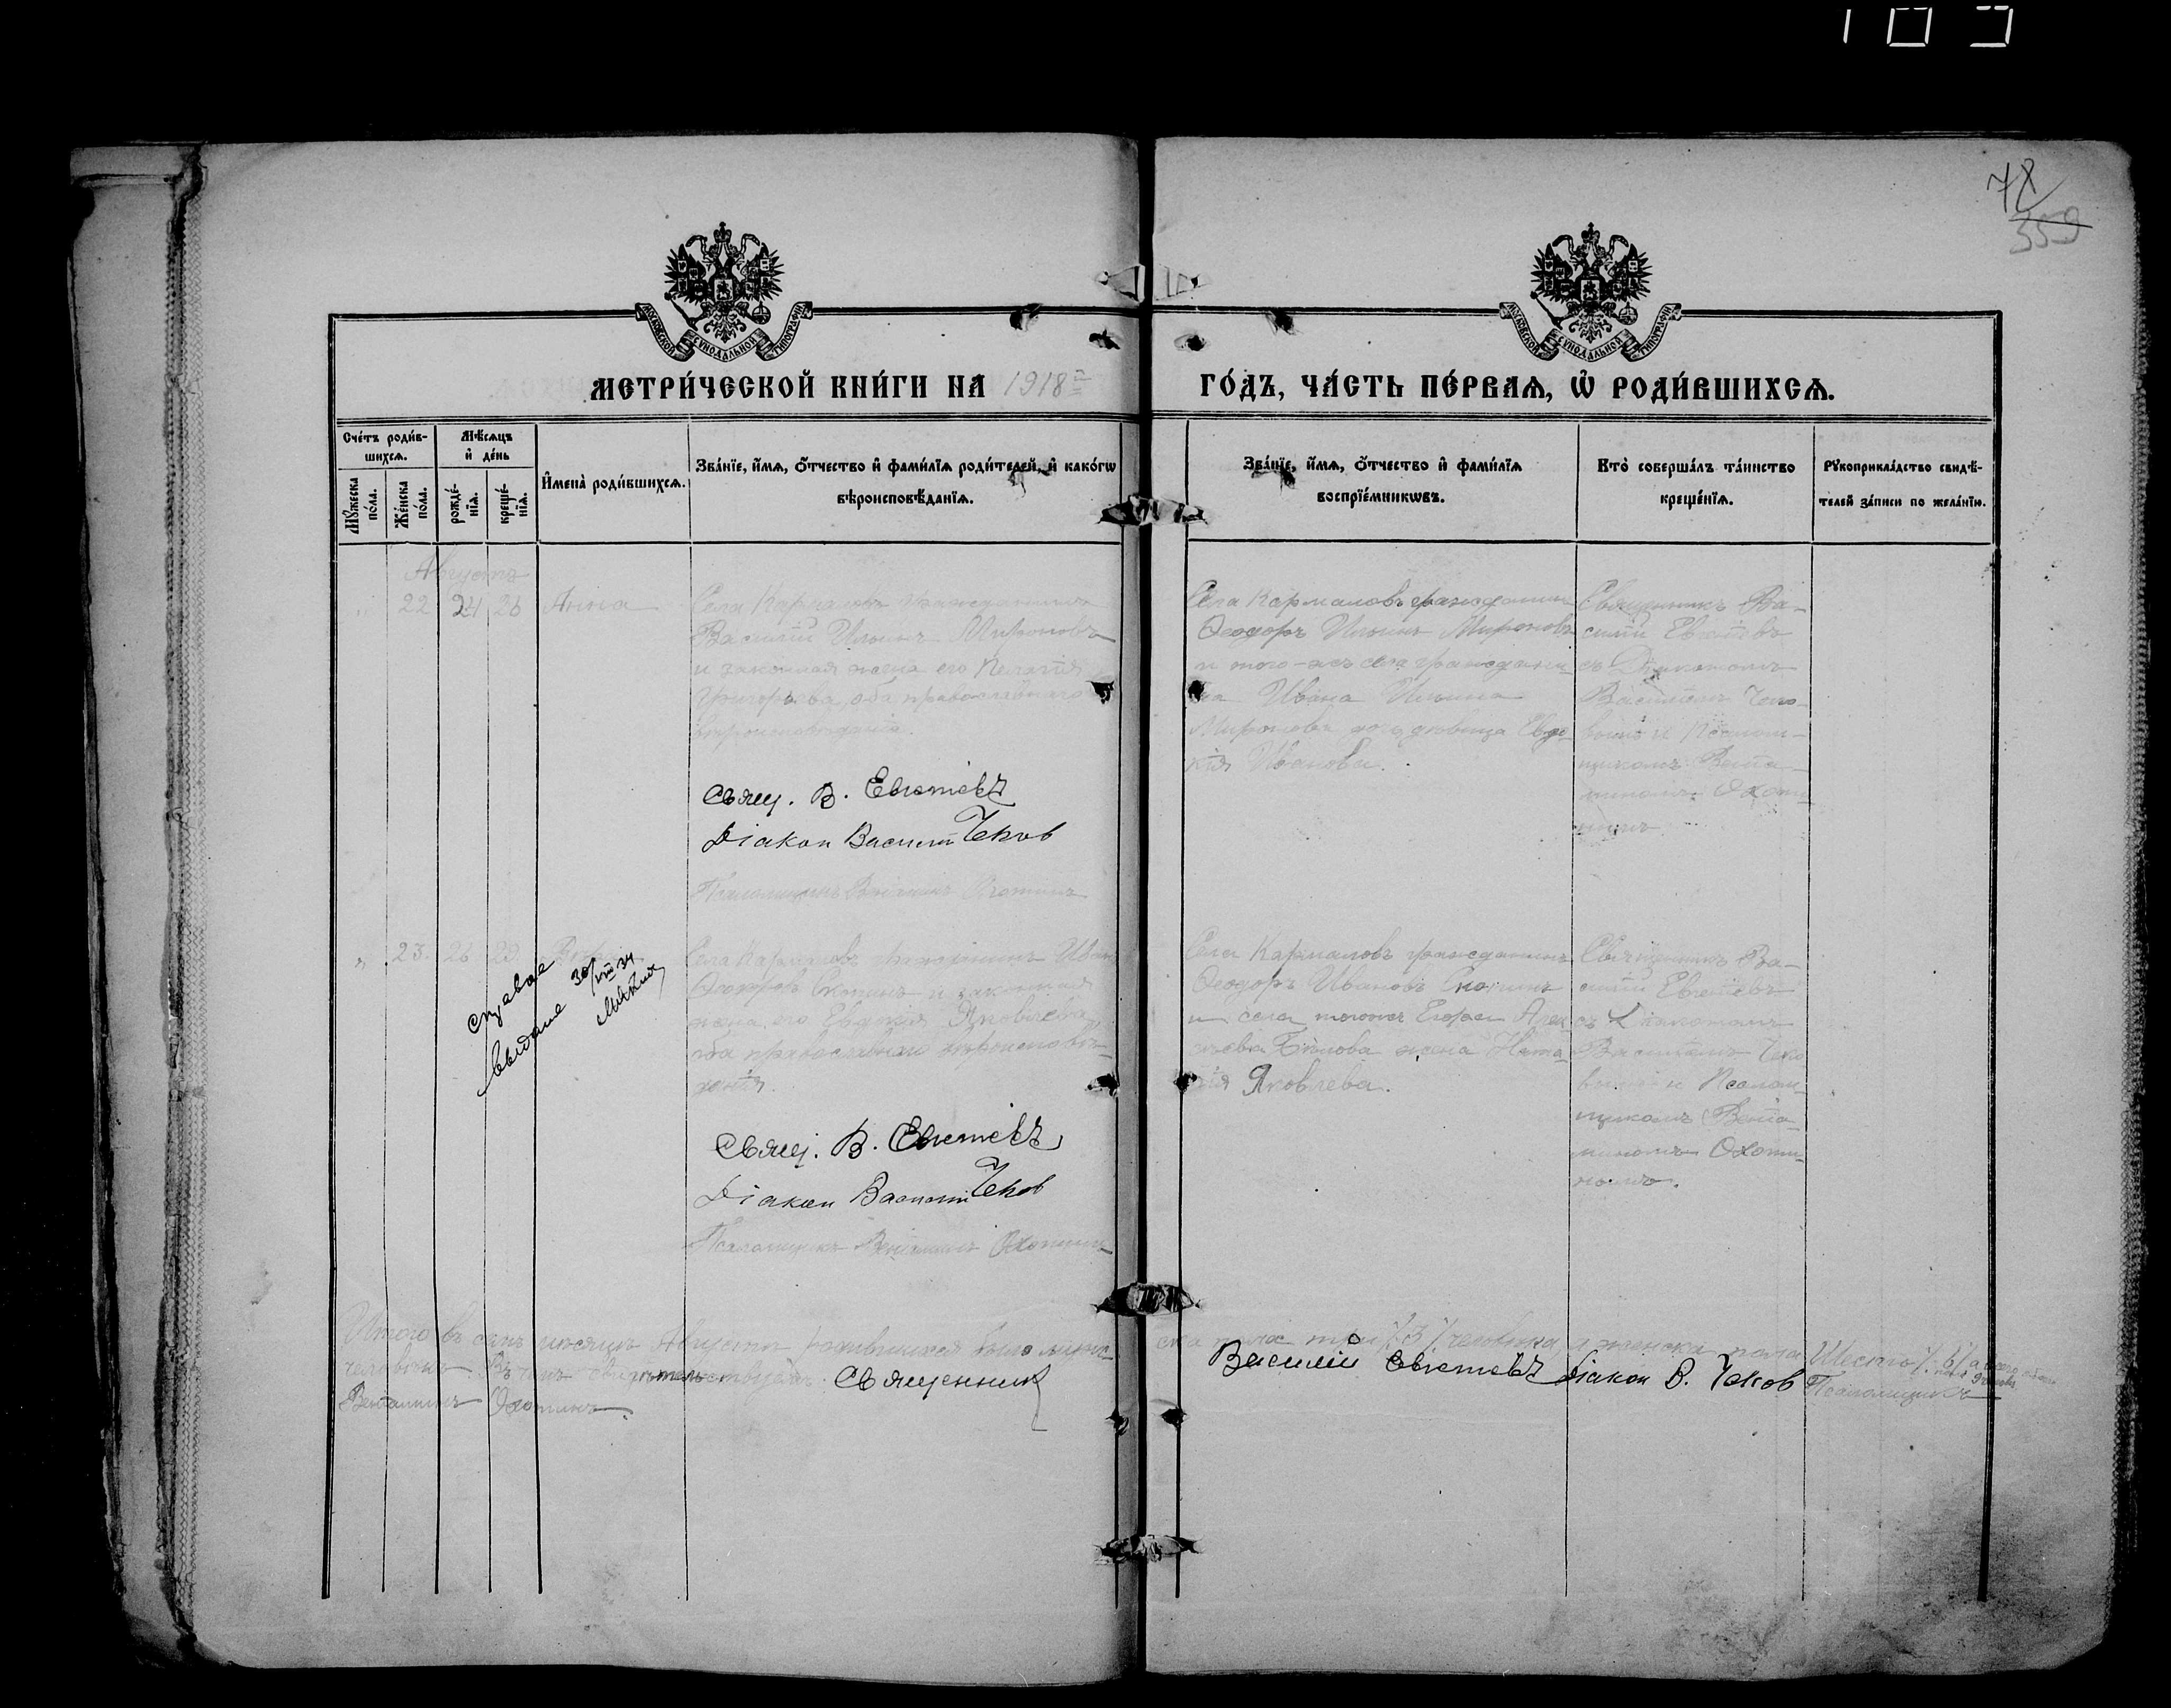 78
359
МОСКОВСКОЙ СѴНОДАЛЬНОЙ ТИПОГРАФІИ
МОСКОВСКОЙ СѴНОДАЛЬНОЙ ТИПОГРАФІИ
МЕТРИ́ЧЕСКОЙ КНИ́ГИ НА 1918 й
ГО́ДЪ, ЧА́СТЬ ПЕ́РВАѦ, Ѡ҆ РОДИ́ВШИХСѦ.
Сче́тъ роди́в-
шихсѧ.
Мꙋ́жеска по́ла.
Же́нска по́ла.
Мѣ́сѧцъ
и҆ де́нь
рожде́-
нїѧ.
креще́-
нїѧ.
И҆мена̀ роди́вшихсѧ.
Зва́нїе, и҆́мѧ, ѻ҆́тчество и҆ фами́лїѧ роди́телей, и҆ како́гѡ
вѣроисповѣ́данїѧ.
Зва́нїе, и҆́мѧ, ѻ҆́тчество и҆ фами́лїѧ
воспрїе́мникѡвъ.
Кто̀ соверша́лъ та́инство
креще́нїѧ.
Рꙋкоприкла́дство свидѣ́-
телей за́писи по жела́нїю.
Августъ
" 22 24 26 Анна
Села Кармаловъ гражданинъ
Василій Ильинъ Мироновъ
и законная жена его Пелагія
Григорьева, оба православнаго
вѣроисповѣданія.
Свящ. В. Евгеніевъ
Діакон Василій Чеков
Псаломщикъ Веніаминъ Охотинъ
Села Кармаловъ гражданинъ
Ѳеодоръ Ильинъ Мироновъ
и того-же села граждани-
на Ивана Ильина
Миронова дочь дѣвица Евдо-
кія Иванова.
Священникъ Ва-
силій Евгеніевъ
съ Діакономъ
Василіемъ Чеко-
вымъ и Псалом-
щикомъ Веніа-
миномъ Охоти-
нымъ.
" 23. 26 29
справка
выдана 30/VIII 34
Села Кармаловъ гражданинъ Иванъ
Ѳеодоровъ Скопинъ и законная
жена его Евдокія Яковлева,
оба православнаго вѣроисповѣ-
данія.
Свящ. В. Евгеніевъ
Діакон Василій Чеков
Псаломщикъ Веніаминъ Охотинъ
Села Кармаловъ гражданинъ
Ѳеодоръ Ивановъ Скопинъ
и села тогоже Егора Алек-
сѣева Бѣлова жена Ната-
лія Яковлева.
Священникъ Ва-
силій Евгеніевъ
съ Діакономъ
Василіемъ Чеко-
вымъ и Псалом-
щикомъ Веніа-
миномъ Охоти-
нымъ.
Итого въ семъ мѣсяцѣ Августѣ родившихся было муже-
ска пола три /3/ человѣка, а женска пола Шесть /6/, а всего
человѣкъ. Въ чемъ свидѣтельствуемъ. Священник
Василій Евгеніевъ Діакон В. Чеков Псаломщикъ
Веніаминъ Охотинъ.